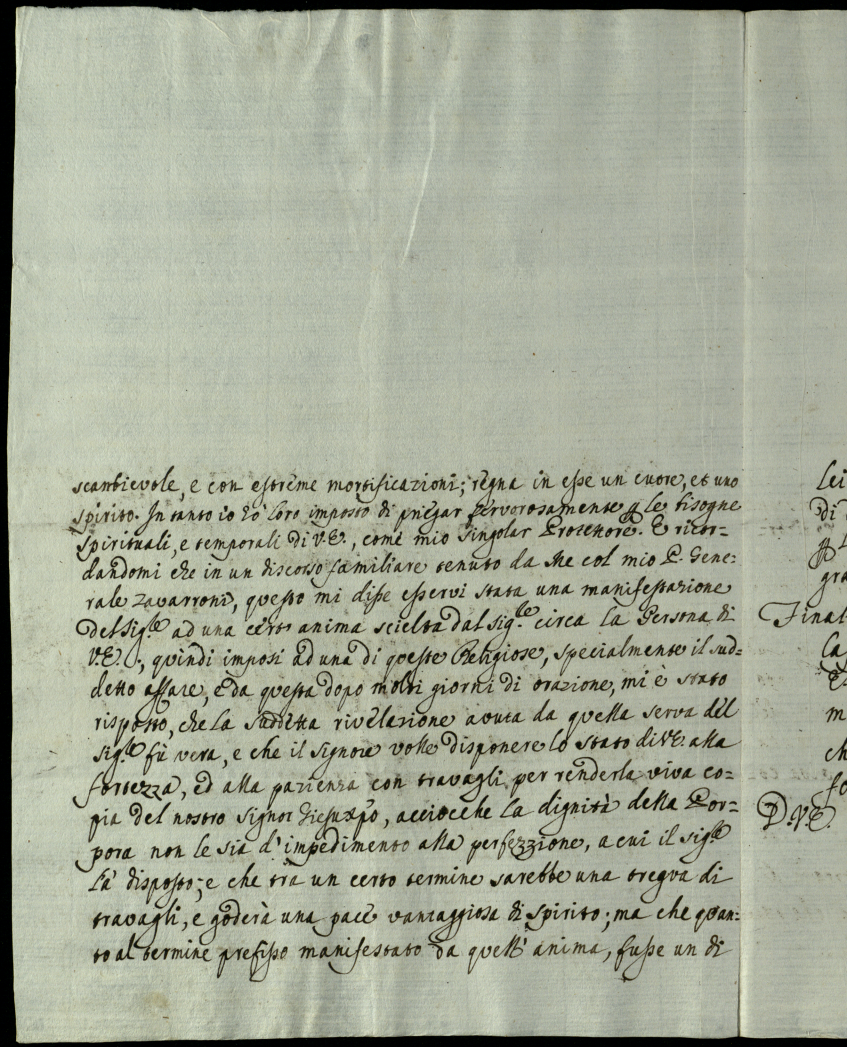 scambievole, e con estreme mortificazioni; regna in esse un cuore, et uno
spirito. In tanto io hò loro imposto di pregar fervorosamente p le bisogne
spirituali, e temporali di V.E., come mio singolar Protettore. E ricor=
dandomi che in un discorso familiare tenuto da me col mio P. Gene:
rale Zavarroni, questo mi disse esservi stata una manifestazione
del Sig.re ad una cert' anima scielta dal Sig.re circa la Persona di
V.E., quindi imposi ad una di queste Religiose, specialmente il sud=
detto affare, e da questa dopo molti giorni di orazione, mi è stato
risposto, che la suddetta rivelazione avuta da quella serva del
Sig.re fù vera, e che il Signore volle disporre lo stato di V.E. alla
fortezza, ed alla pazienza con travagli, per renderla viva co=
pia del nostro Signor Giesuxpo, acciocche la dignità della Por=
pora non le sia d'impedimento alla perfezzione, a cui il Sig.re
l'à disposto; e che trà un certo termine sarebbe una tregva di
travagli, e goderà una pace vantaggiosa di spirito; ma che quan:
to al termine prefisso manifestato da quell' anima, fusse un di
lei
di
gra
Final
la
m
ch
D.V.E.